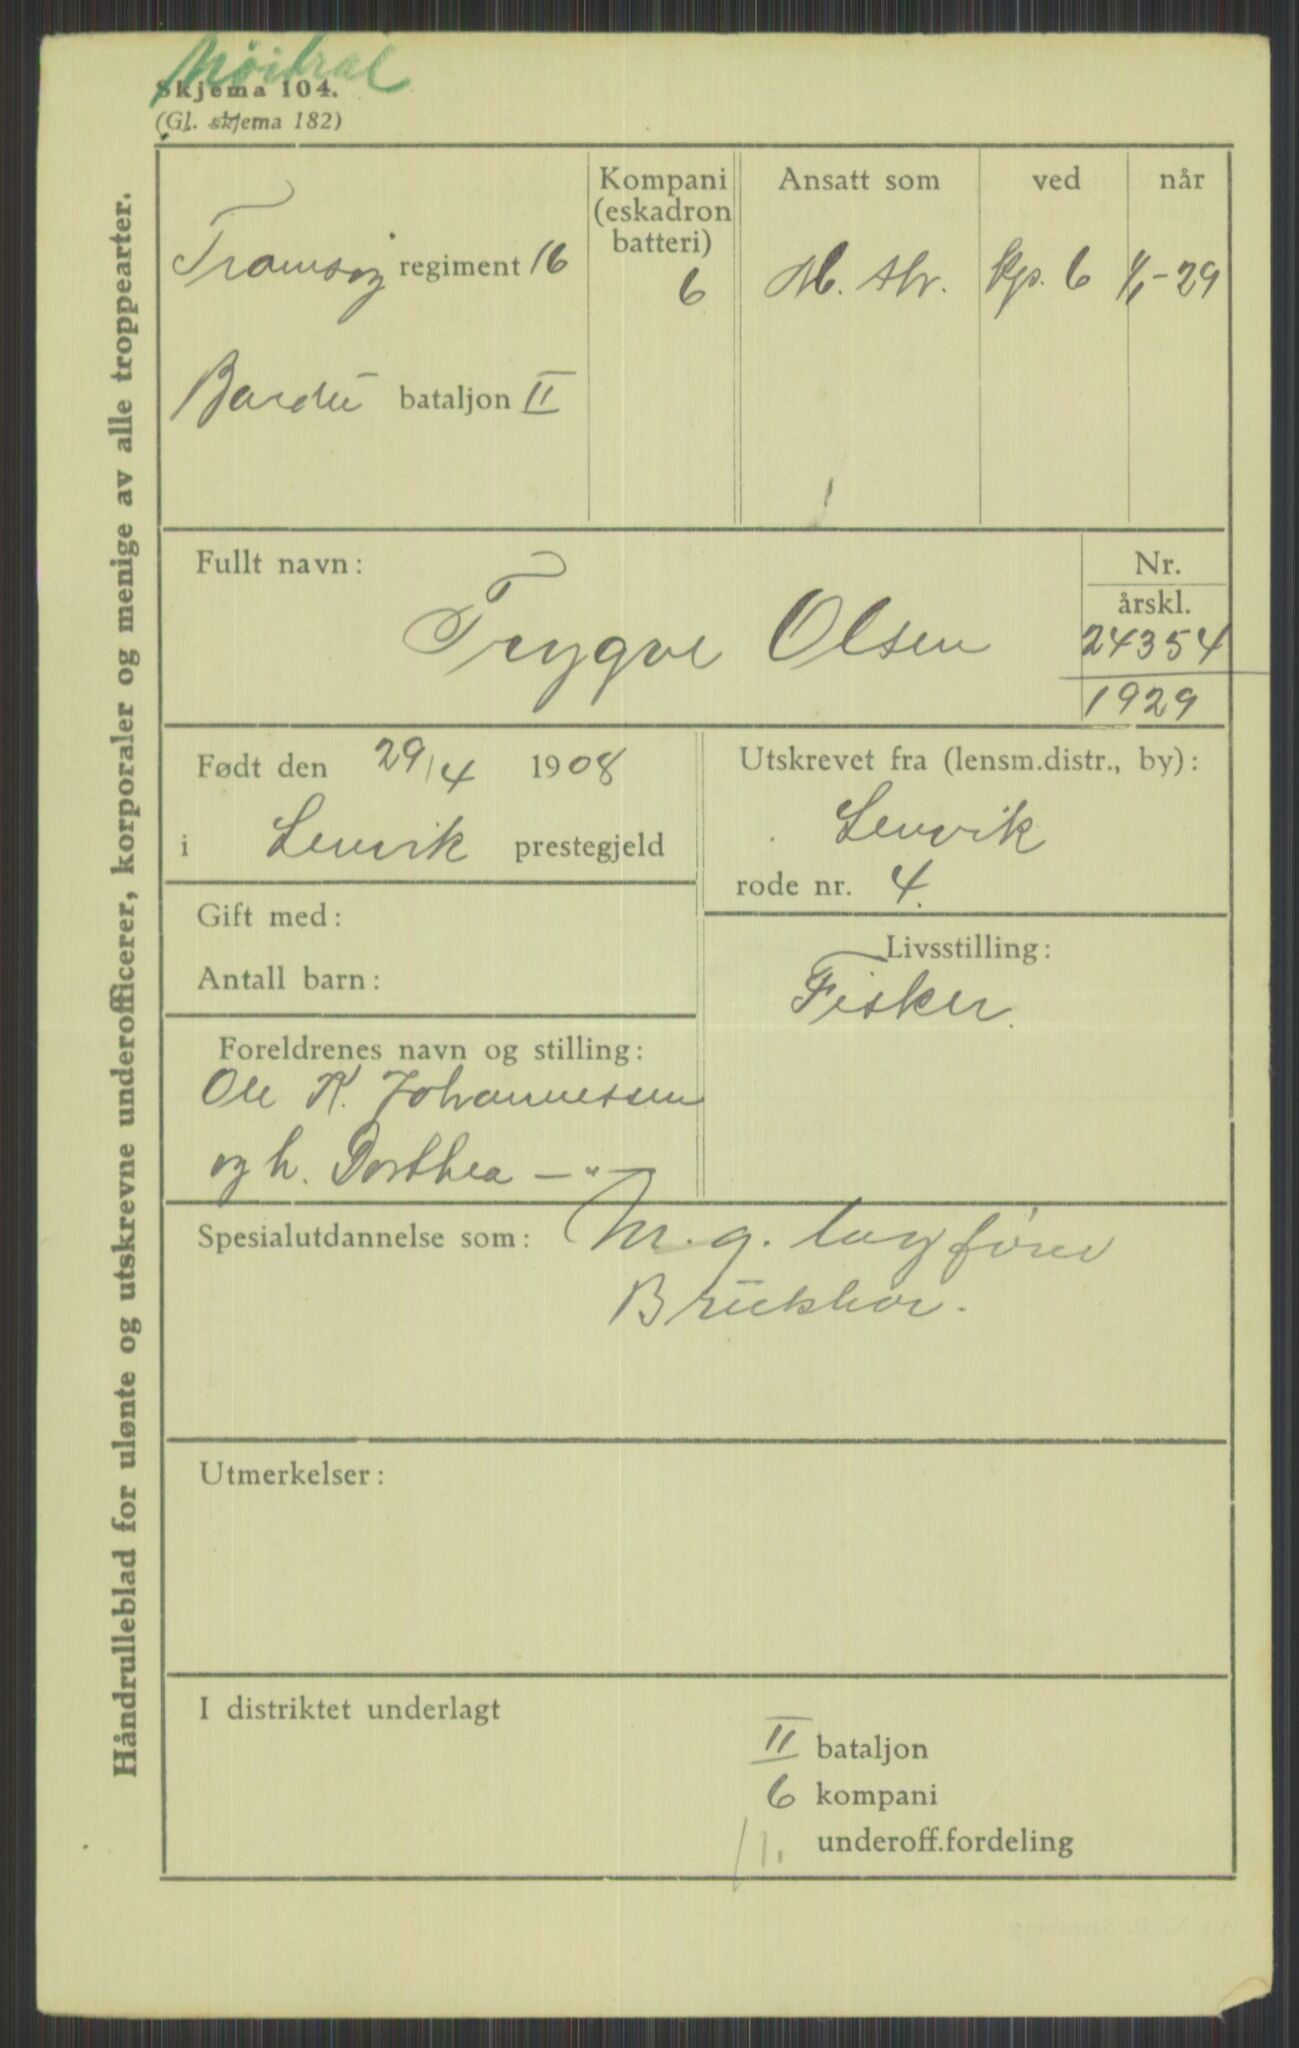 Nøitral
Skjema 104.
(Gl. skjema 182)
Håndrulleblad for ulønte og utskrevne underofficerer, korporaler og menige av alle troppearter.
Kompani
(eskadron
batteri)
Ansatt som
ved
når
Tromsø regiment 16
6
kp. 6
1/1-29
Bardu bataljon II
Fullt navn:
Trygve Olsen
Nr.
årskl.
24354
1929
Født den 29/4 1908
i Lenvik prestegjeld
Utskrevet fra (lensm.distr., by):
Lenvik
rode nr. 4.
Gift med:
Antall barn:
Livsstilling:
Fisker.
Foreldrenes navn og stilling:
Ole K. Johannessen
og h. Dorthea —"—
Spesialutdannelse som: M.g. lagfører
Utmerkelser:
I distriktet underlagt
II bataljon
6 kompani
underoff.fordeling